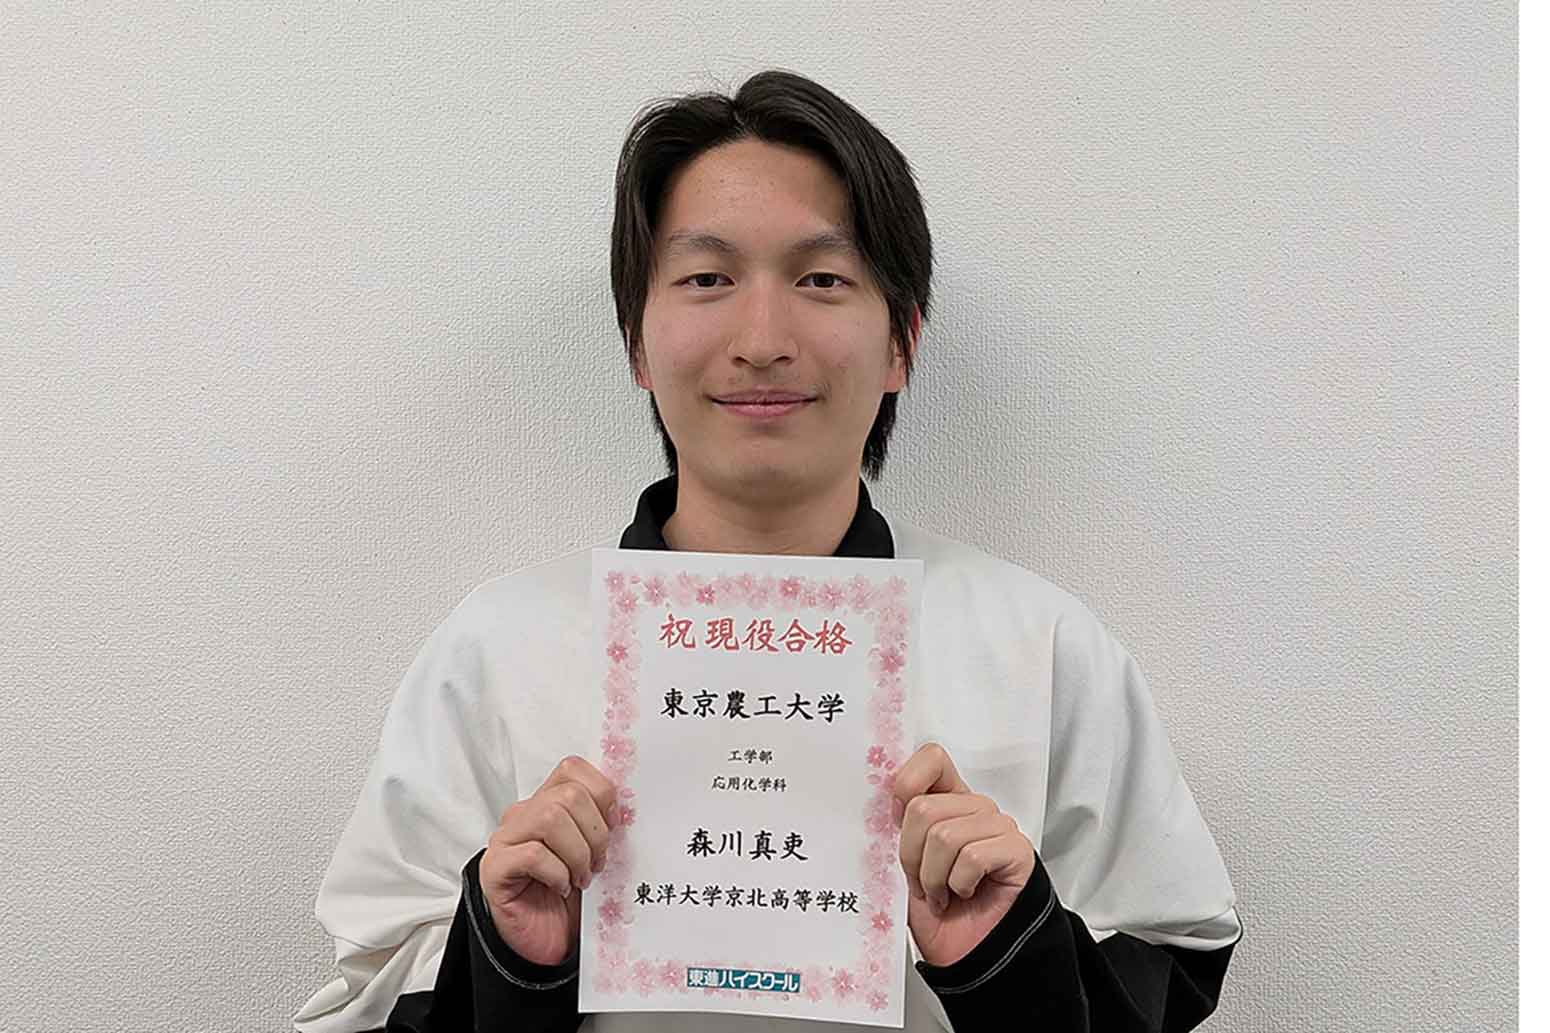 祝 現役合格
東京農工大学
工学部
応用化学科
森川真吏
東洋大学京北高等学校
東進ハイスクール